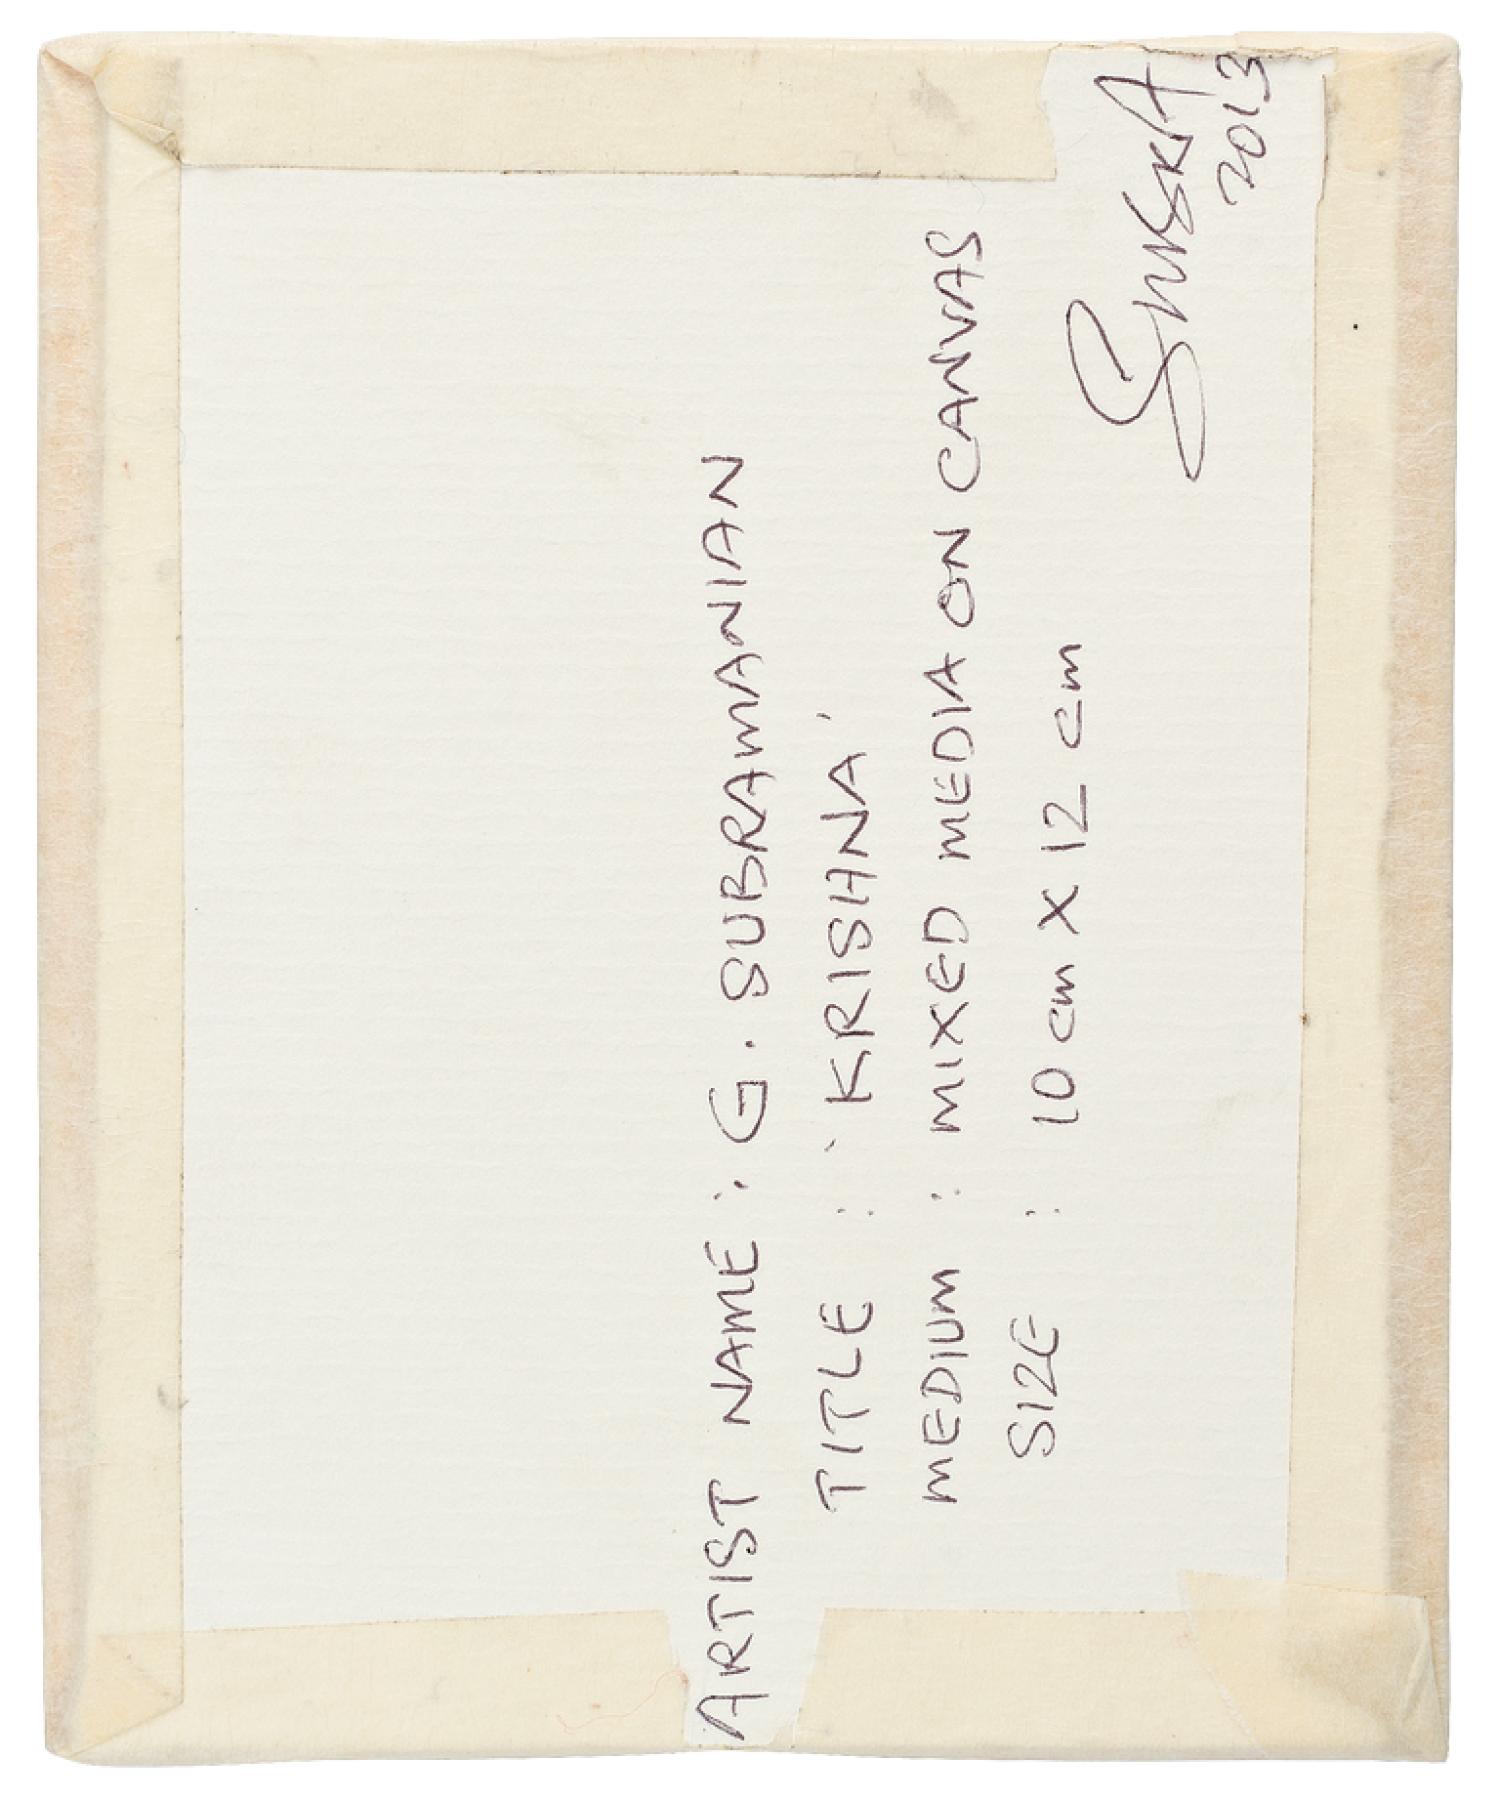 ARTIST NAME : G. SUBRAMANIAN
TITLE : 'KRISHNA'
MEDIUM : MIXED MEDIA ON CANVAS
SIZE : 10 cm X 12 cm
2013